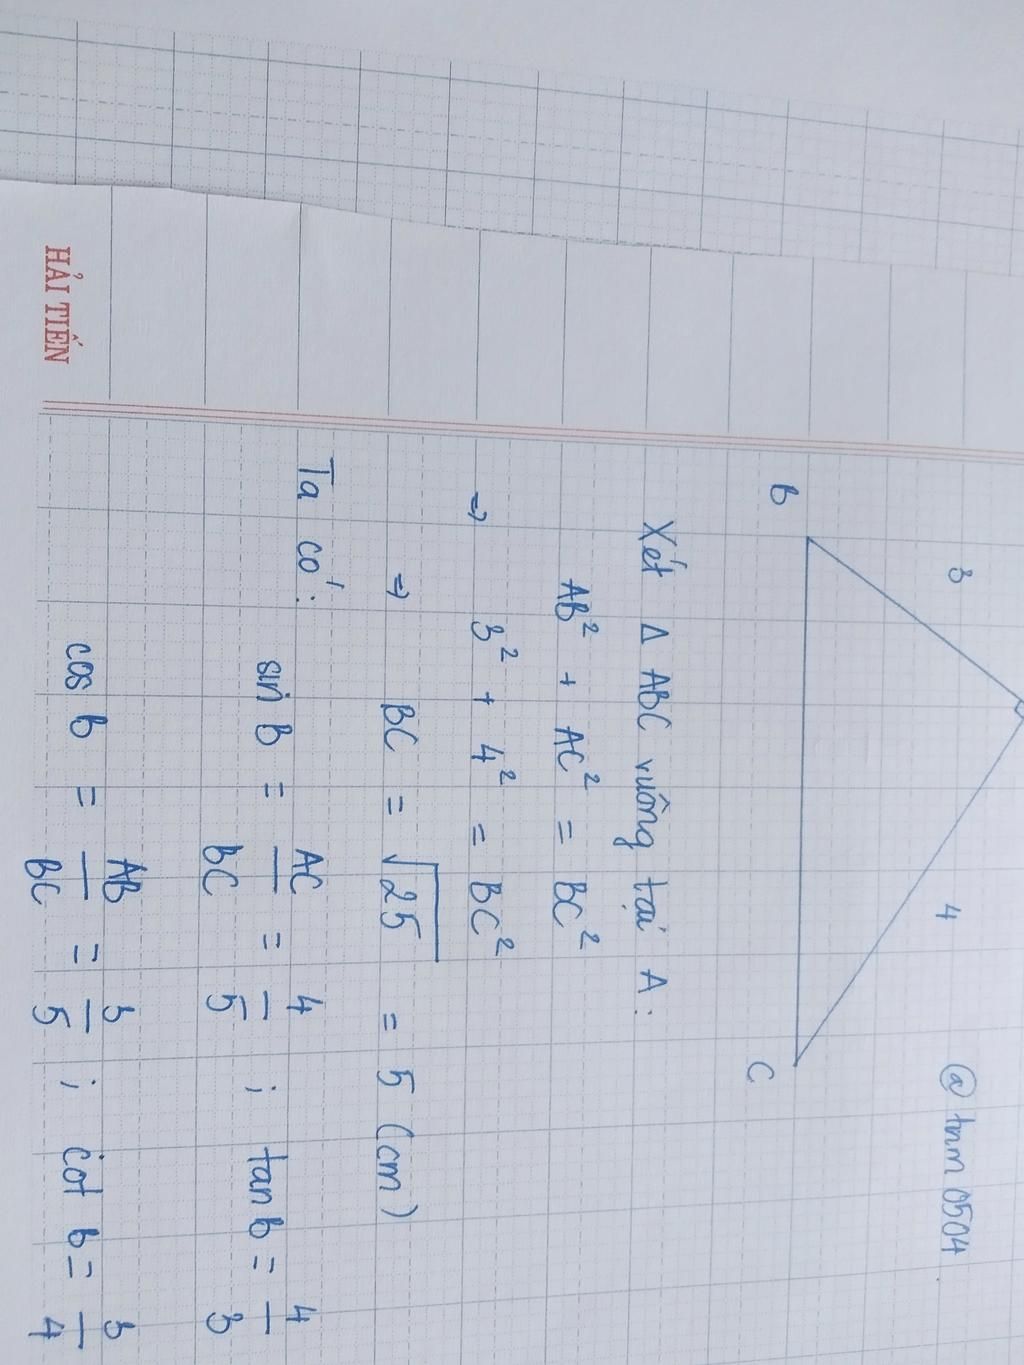 @ tnm 0504
3
4
B
C
Xét Δ ABC vuông tại A:
AB² + AC² = BC²
⇒ 3² + 4² = BC²
⇒ BC = √25 = 5 (cm)
Ta có: sin B = AC/BC = 4/5 ; tan B = 4/3
cos B = AB/BC = 3/5 ; cot B = 3/4
HẢI TIẾN